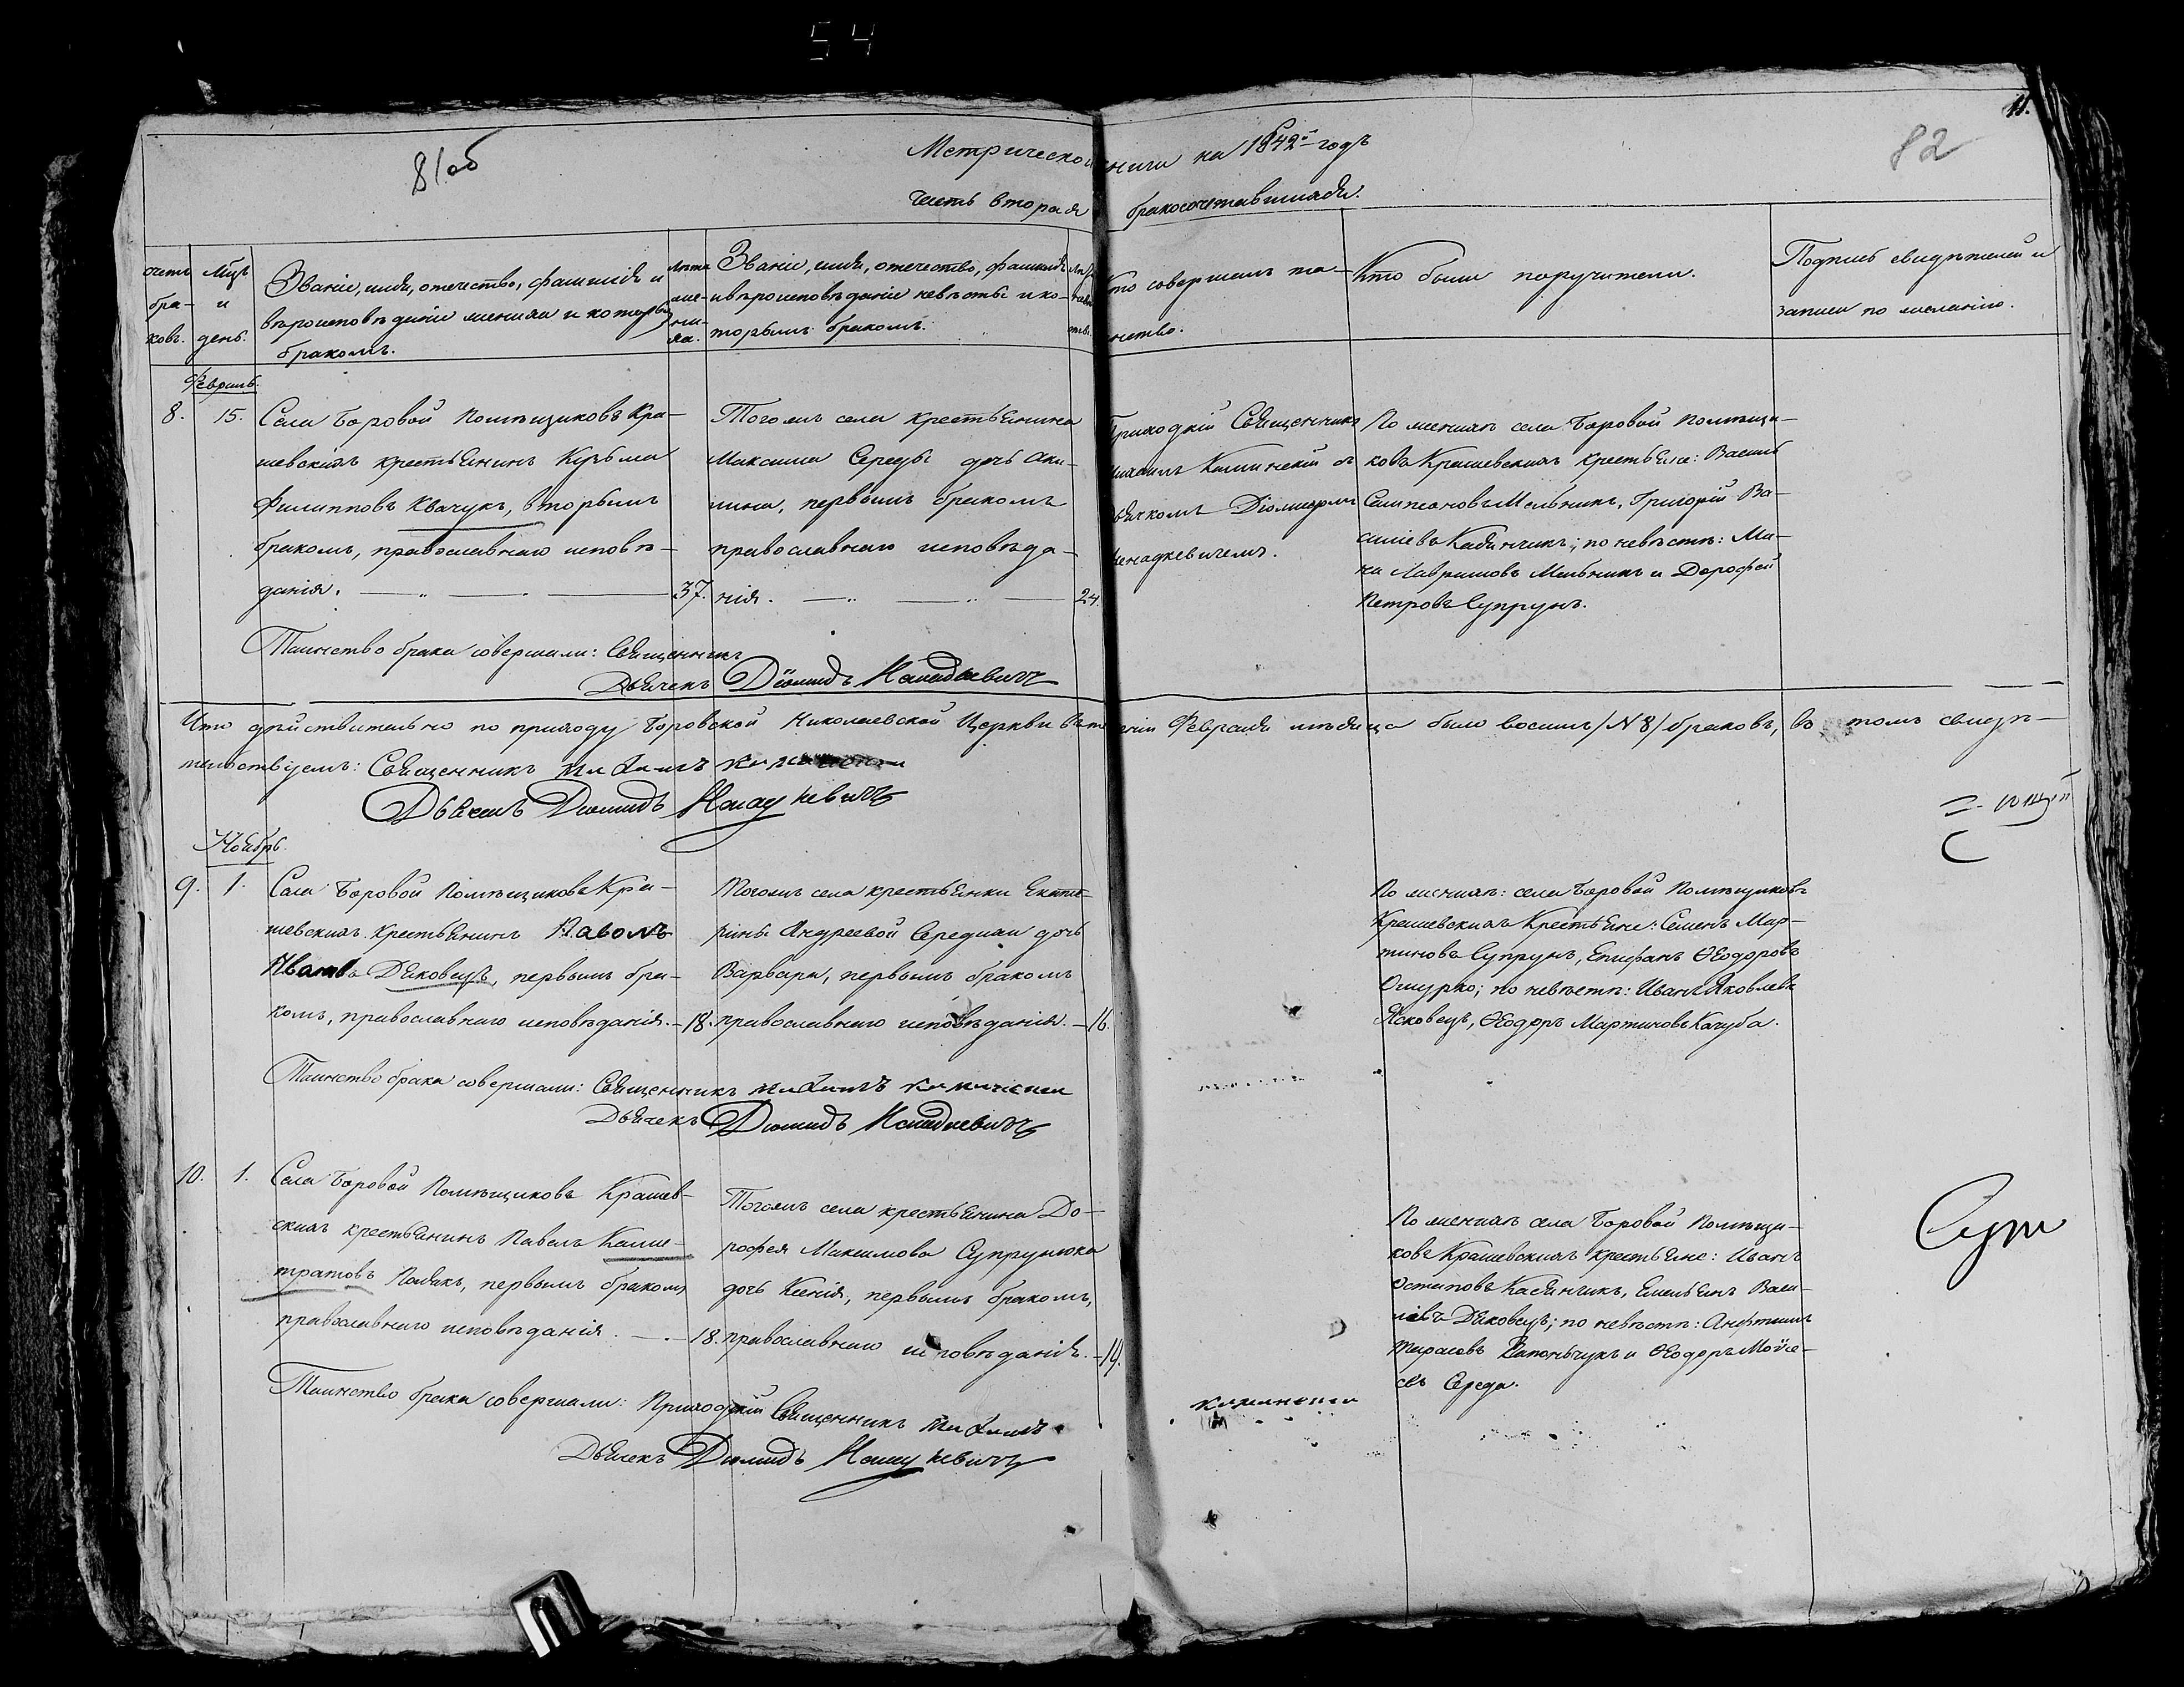 54
11.
81об
82
Метрической книги на 1842й годъ
Часть вторая бракосочетавшияся.
Счетъ бра- ковъ.
Мцъ и день.
Званіе, имя, отечество, фамилія и
вѣроисповѣданіе жениха и которымъ
бракомъ.
Лѣта же- ни- ха.
Званіе, имя, отечество, фамилія
и вѣроисповѣданіе невѣсты и ко-
торымъ бракомъ.
Кто совершалъ та-
инство.
Кто были поручители.
Подпись свидѣтелей и
записи по желанію.
Февраль.
8. 15.
Села Боровой Помѣщиковъ Кра-
шевскихъ крестьянинъ Козьма
Филипповъ Квачукъ, вторымъ
бракомъ, православнаго исповѣ-
данія. 37.
Тогожъ села крестьянина
Максима Середы дочь Аки-
лина, первымъ бракомъ
православнаго исповѣда-
нія. 24.
Приходкій Священникъ
Михаилъ Каминскій съ
дьячкомъ Діомидомъ
По женихѣ села Боровой Помѣщи-
ковъ Крашевскихъ крестьяне: Василь
Сампсоновъ Мельникъ, Григорій Ва-
силіевъ Касянчикъ; по невѣстѣ: Ми-
на Лавриновъ Мельникъ и Дорофей
Петровъ Супрунъ.
Таинство брака совершали: Священникъ
Дьячекъ Діомидъ
Что дѣйствительно по приходу Боровской Николаевской Церкви въ теченіи Февраля мѣсяца было восимъ /N 8/ браковъ, въ томъ свидѣ-
тельствуемъ: Священникъ Михаилъ
Дьячекъ Діомидъ
Ноябрь.
9. 1.
Села Боровой Помѣщиковъ Кра-
шевскихъ Крестьянинъ Паволъ
Ивановъ Дяковецъ, первымъ бра-
комъ, православнаго исповѣданія. – 18.
Тогожъ села крестьянки Екате-
рины Андреевой Середихи дочь
Варвара, первымъ бракомъ
православнаго исповѣданія. – 16.
По женихѣ: села Боровой Помѣщиковъ
Крашевскихъ Крестьяне: Семенъ Мар-
тиновъ Супрунъ, Епифанъ Ѳеодоровъ
Ошурко; по невѣстѣ: Иванъ Яковлевъ
Ясковецъ, Ѳеодоръ Мартиновъ Качуба.
Таинство брака совершали: Священникъ Михаилъ Каминскій
Дьячекъ Діомидъ
10. 1.
Села Боровой Помѣщиковъ Крашев-
скихъ крестьянинъ Павелъ Кали-
стратовъ Полякъ, первымъ бракомъ
православнаго исповѣданія. – 18.
Тогожъ села крестьянина До-
рофея Максимова Супрунюка
дочь Ксенія, первымъ бракомъ,
православнаго исповѣданія. – 19.
По женихѣ села Боровой Помѣщи-
ковъ Крашевскихъ крестьяне: Иванъ
Остаповъ Касянчикъ, Емельянъ Васи-
ліевъ Дяковецъ; по невѣстѣ: Анфтимъ
Тарасовъ и Ѳеодоръ Мойсе-
евъ Середа.
Таинство брака совершали: Приходкій Священникъ Михаилъ Каминскій
Дьячекъ Діомидъ